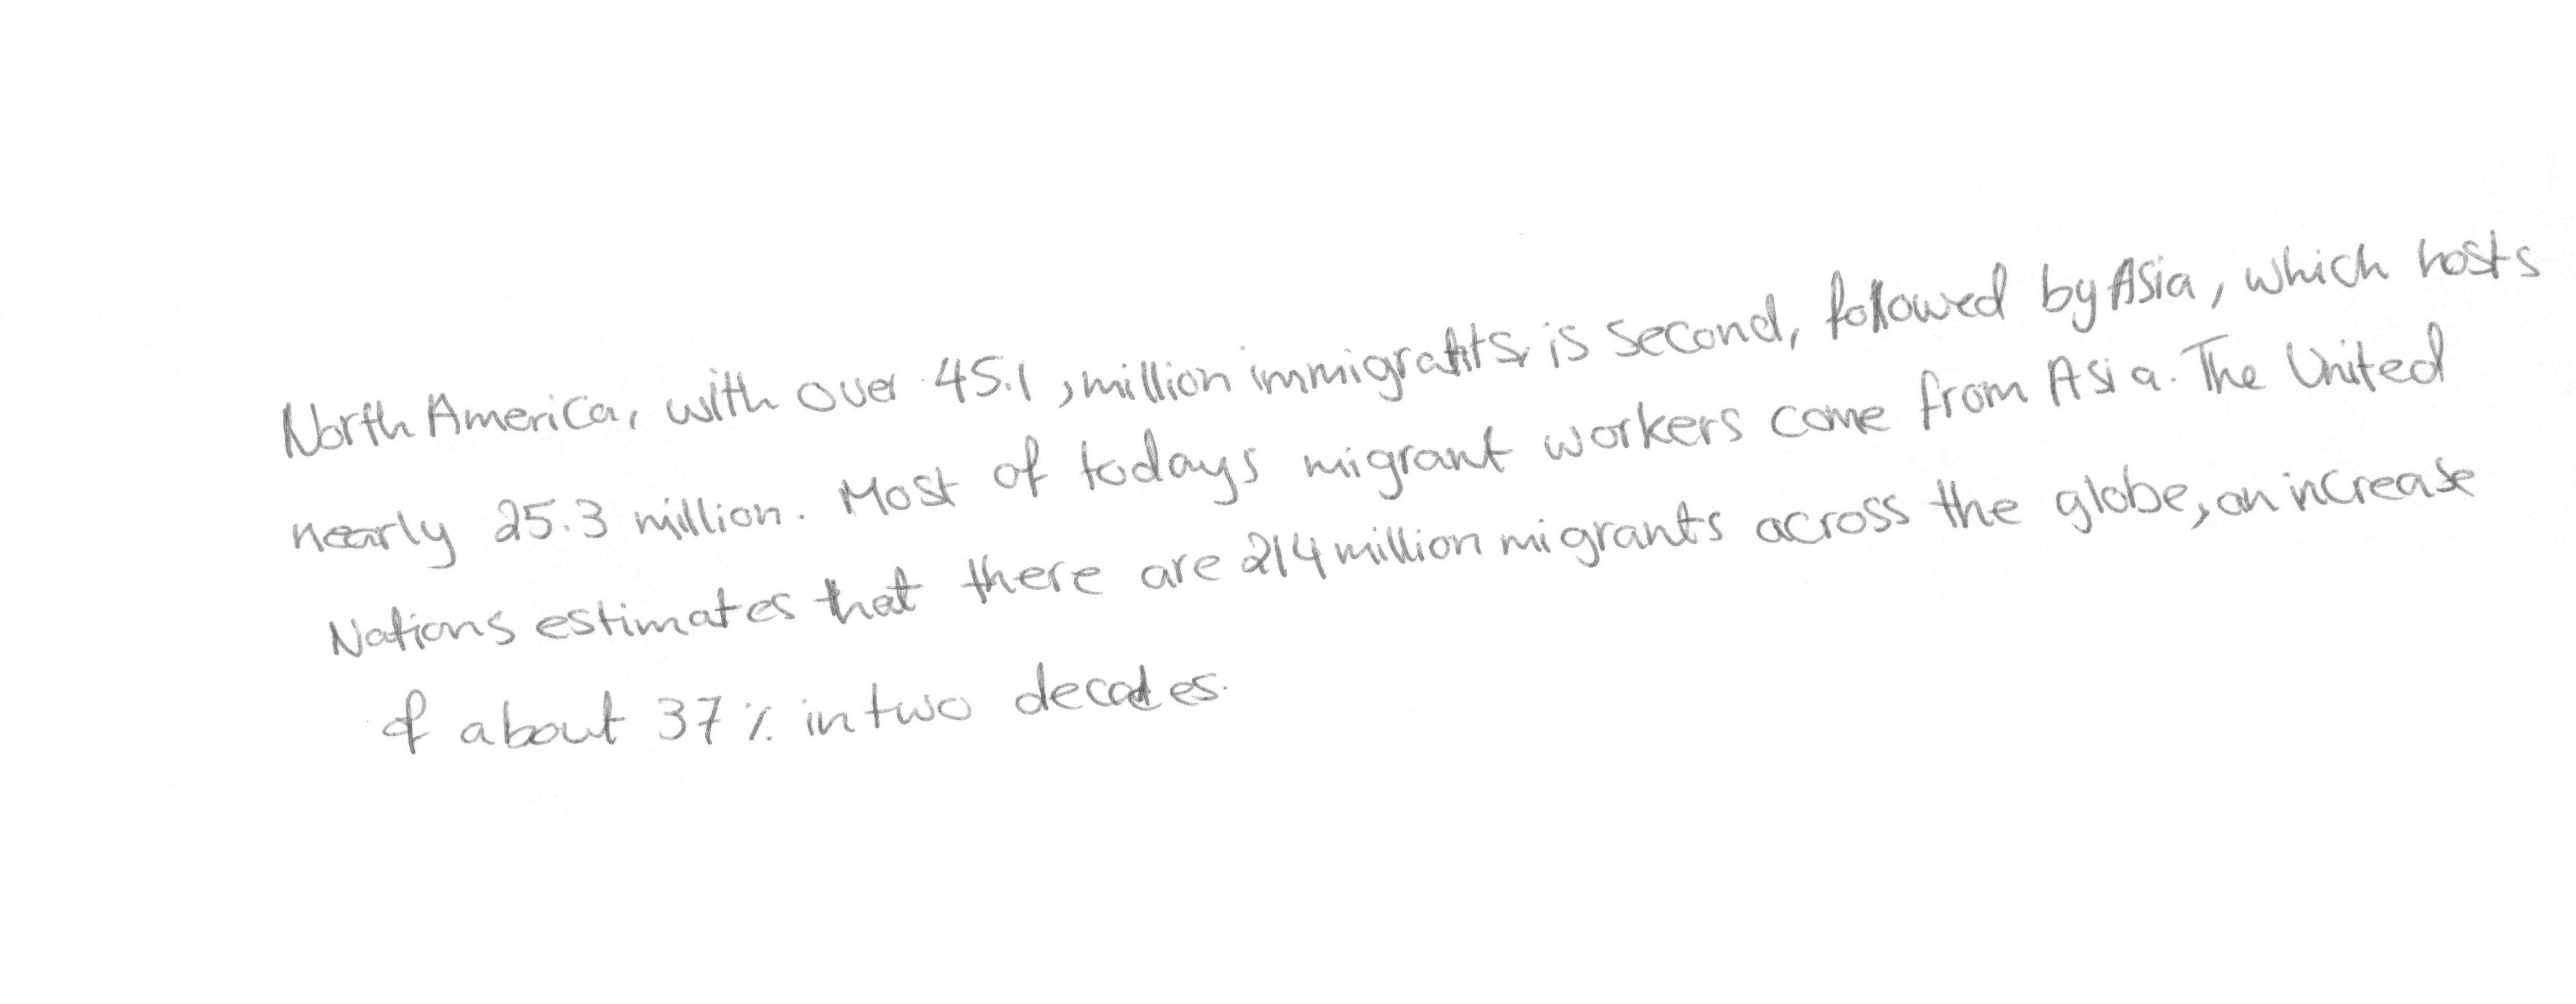 North America, with over 45.1 , million immigrants, is second, followed by Asia, which hosts
nearly 25.3 million. Most of todays migrant workers come from Asia. The United
Nations estimates that there are 214 million migrants across the globe, an increase
of about 37 % in two decades.